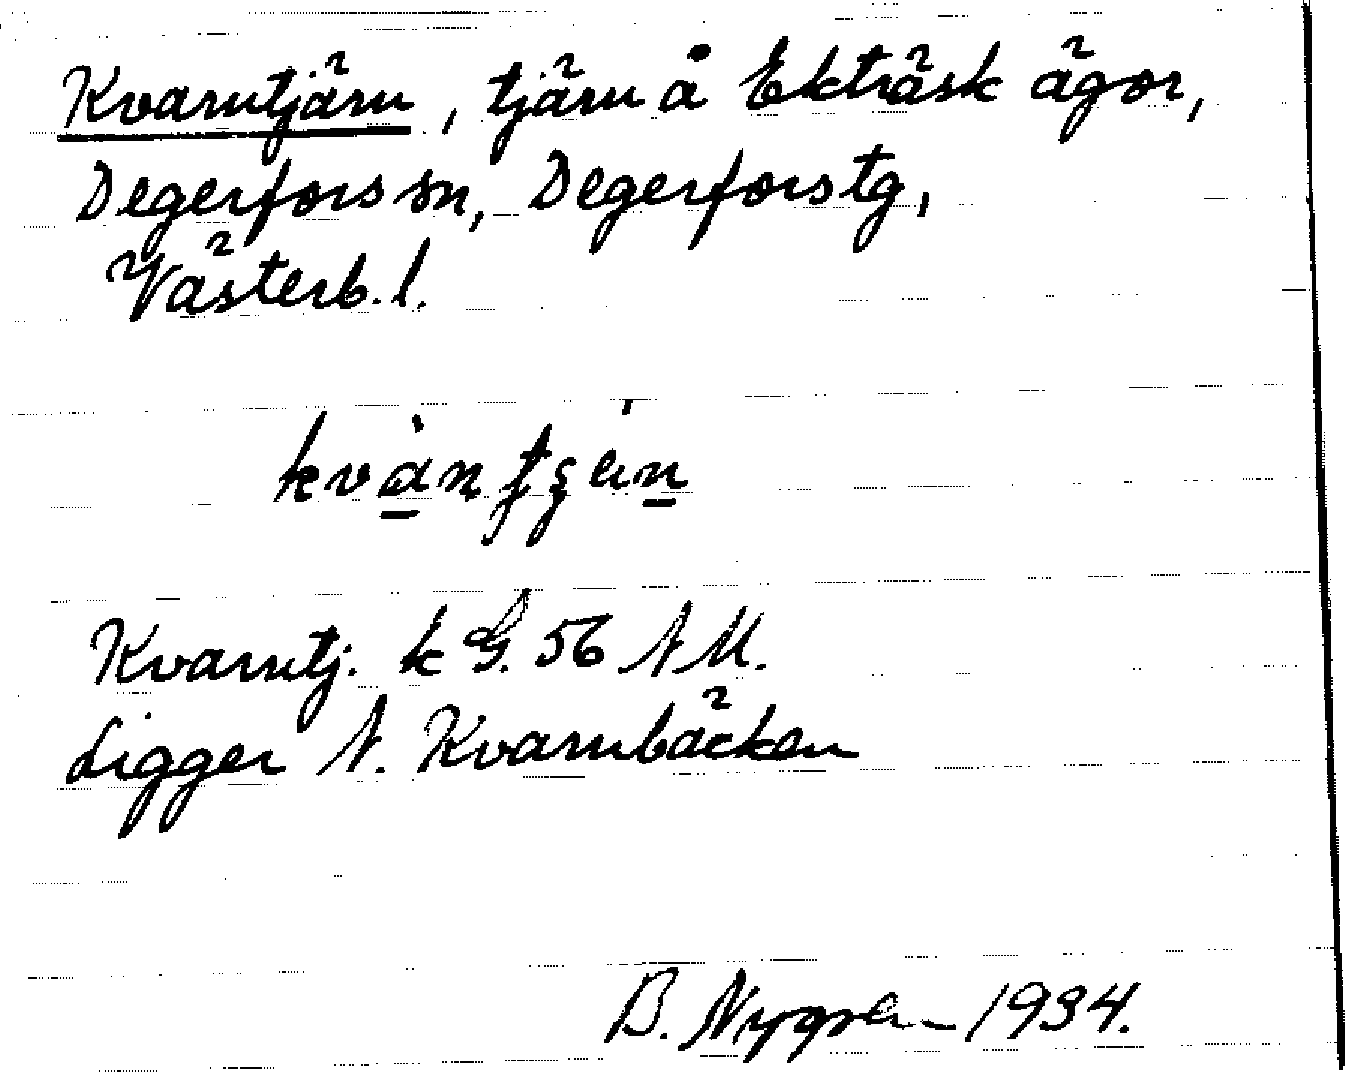 Kvarntjärn, tjärn å Ekträsk ägor,
Degerfors sn, Degerfors tg,
Västerb. l.
Kvarntj. k G. 56 N M.
Ligger N. Kvarnbäcken
B. Nygren 1934.